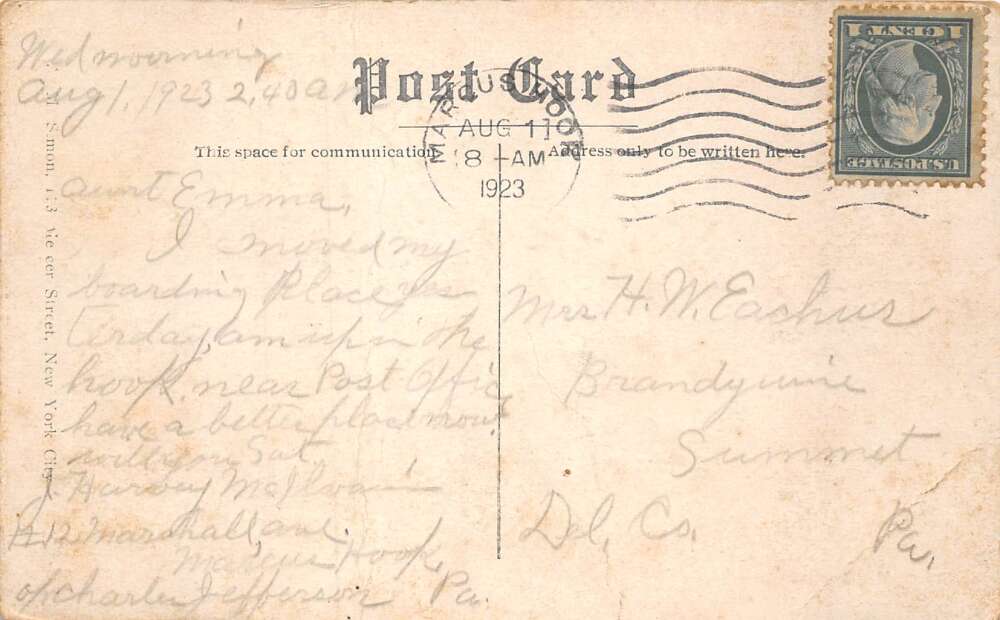 Wed morning
Aug 1, 1923 2,40 am
Post Card
MARCUS HOOK
AUG 1
8 - AM
1923
1 CENT 1
U.S. POSTAGE
This space for communication
Address only to be written here.
Aunt Emma,
I moved my
boarding Place yes
terday, am up in the
hook, near Post Offic
have a better place now
will you Sat.
J. Harvey McIlvain
12 Marshall, ave
Marcus Hook,
Pa.
of Charles Jefferson
Mrs H. W. Eachus
Brandywine
Summet
Del, Co,
Pa,
Simon, Street, New York City